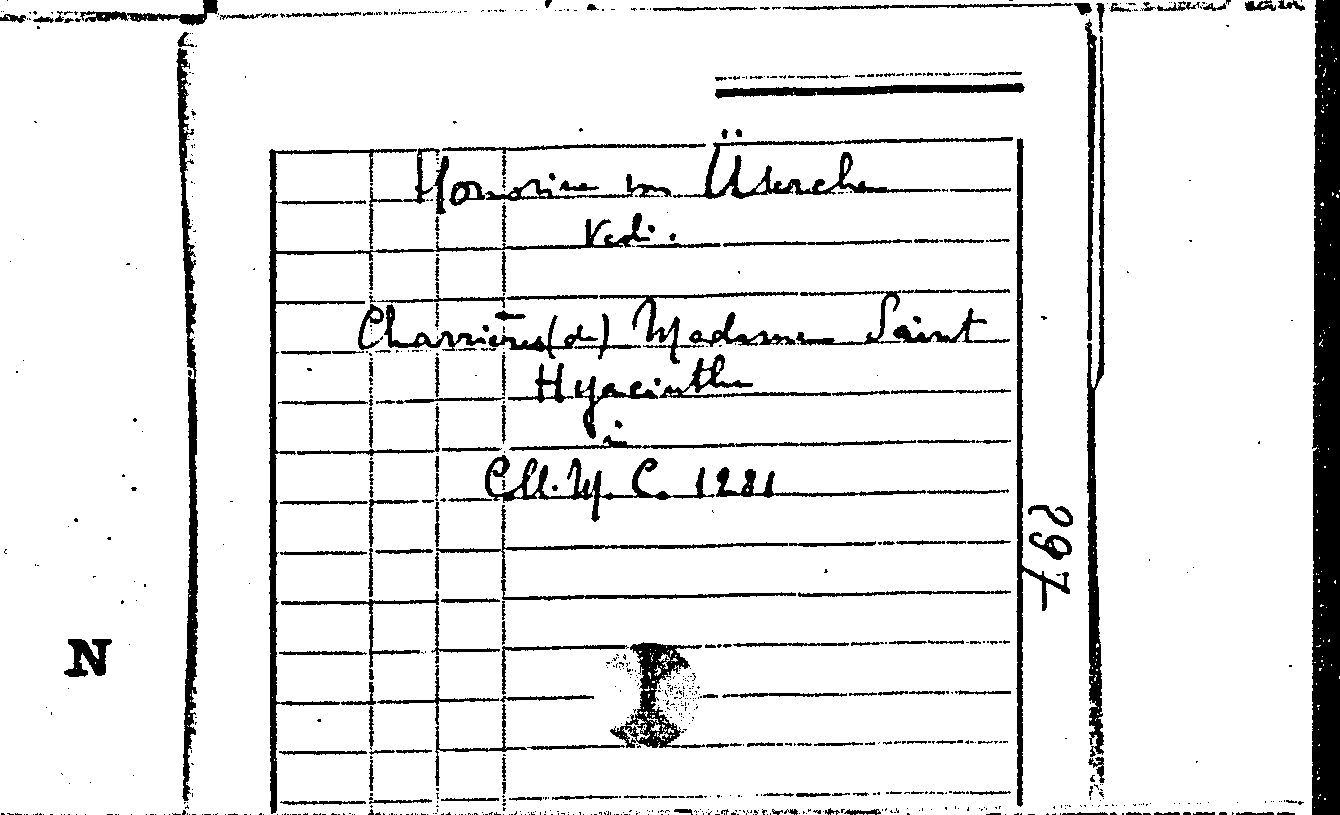 Honorine von Üserche
Vedi.
Charrières (de) Madame Saint
Hyacinthe
in
Coll. M. C. 1281
297
N